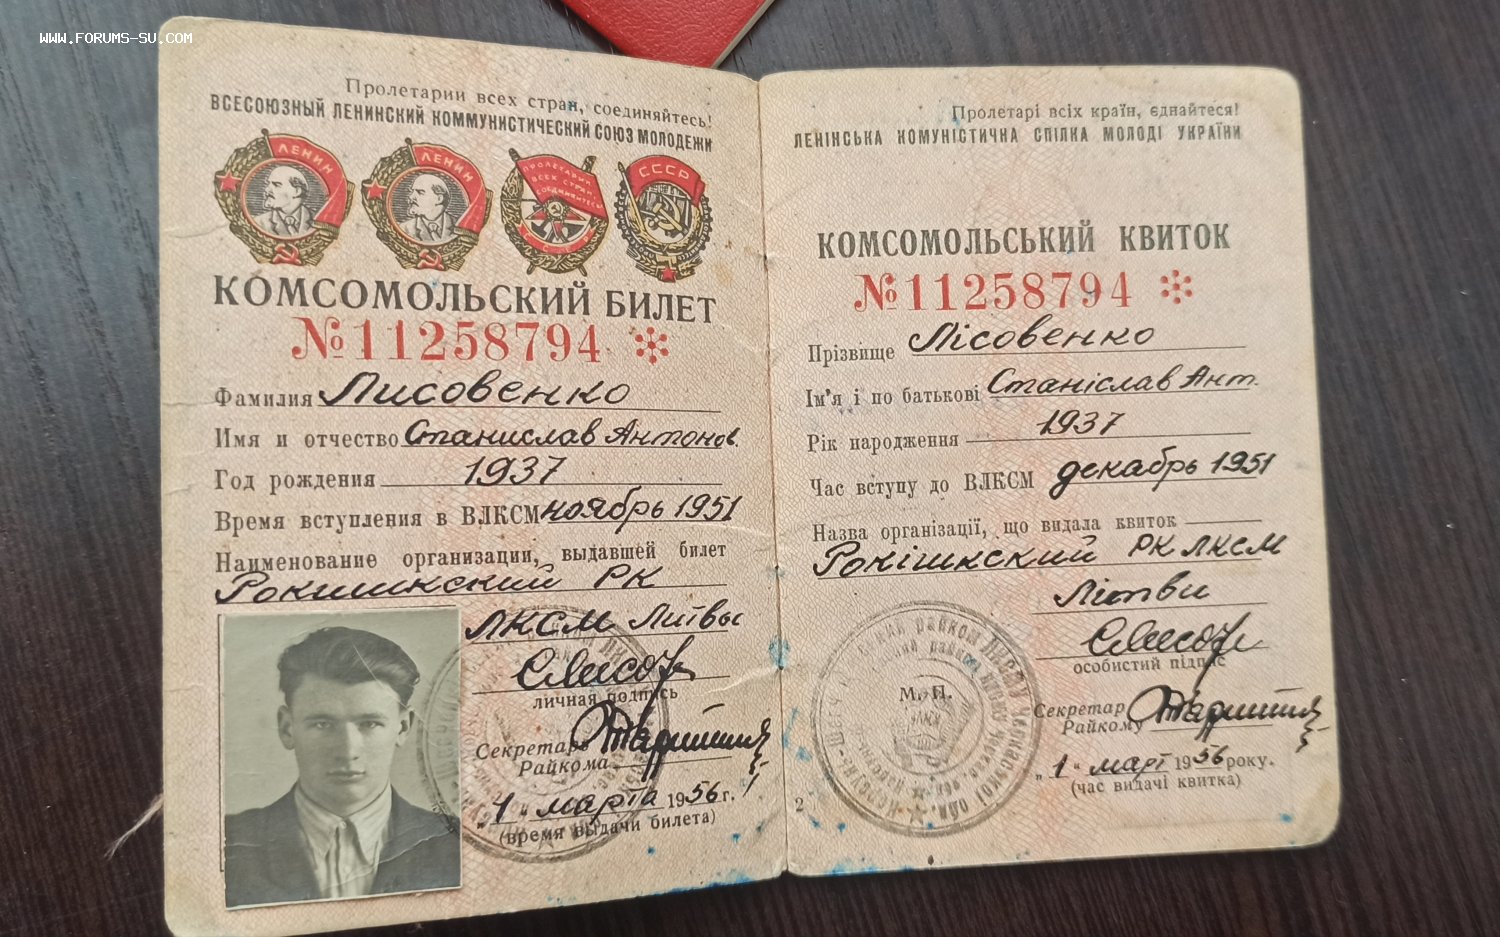 WWW.FORUMS-SU.COM
Пролетарии всех стран, соединяйтесь!
ВСЕСОЮЗНЫЙ ЛЕНИНСКИЙ КОММУНИСТИЧЕСКИЙ СОЮЗ МОЛОДЕЖИ
ЛЕНИН
ЛЕНИН
ПРОЛЕТАРИИ ВСЕХ СТРАН СОЕДИНЯЙТЕСЬ
СССР
СССР
КОМСОМОЛЬСКИЙ БИЛЕТ
№11258794
Фамилия Лисовенко
Имя и отчество Станислав Антонов.
Год рождения 1937
Время вступления в ВЛКСМ ноябрь 1951
Наименование организации, выдавшей билет
Рокишкский РК
ЛКСМ Литвы
личная подпись
Секретарь
Райкома
"1" марта 1956 г.
(время выдачи билета)
Пролетарі всіх країн, єднайтеся!
ЛЕНІНСЬКА КОМУНІСТИЧНА СПІЛКА МОЛОДІ УКРАЇНИ
КОМСОМОЛЬСЬКИЙ КВИТОК
№11258794
Прізвище Лісовенко
Ім'я і по батькові Станіслав Ант.
Рік народження 1937
Час вступу до ВЛКСМ декабрь 1951
Назва організації, що видала квиток
Рокішкский РК ЛКСМ
Літви
особистий підпис
М. П.
Секретар
Райкому
"1" март 1956 року.
(час видачі квитка)
2